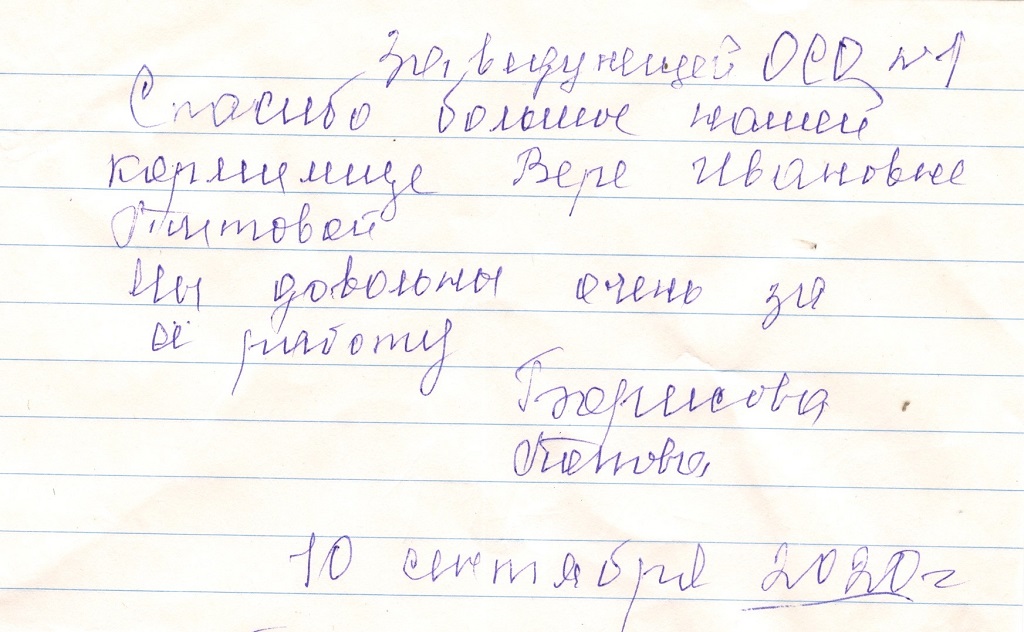 заведующей ОСО №1
Спасибо большое нашей
кормилице Вере Ивановне
Титовой
Мы довольны очень за
её работу
Борисова
Попова
10 сентября 2020 г